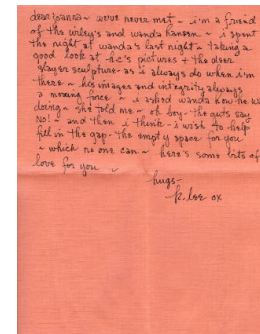 dear joanna ~ we've never met - i'm a friend
of the urley's and wanda hansen ~ i spent
the night at wanda's last night ~ taking a
good look at 's pictures + the deer
slayer sculpture - as i always do when i'm
there ~ his images and integrity always
a moving force ~ i asked wanda how he was
doing ~ she told me ~ oh boy - the guts say
No! ~ and then i think - i wish to help
fill in the gap - the empty space for you
~ which no one can ~ here's some bits of
love for you ~
hugs -
k. lee ox